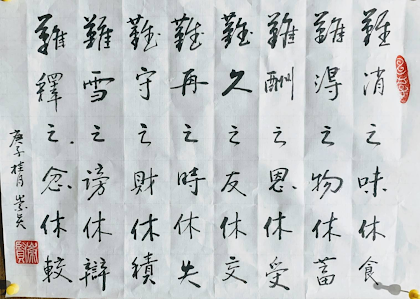 難消之味休食
難得之物休蓄
難酬之恩休受
難久之友休交
難再之時休失
難守之財休積
難雪之謗休辯
難釋之念休較
庚子桂月